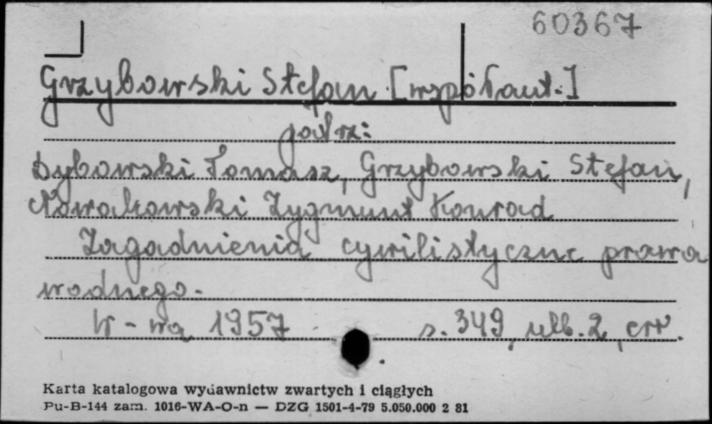 60367
Grzybowski Stefan [współaut.]
patrz:
Dybowski Tomasz, Grzybowski Stefan,
Nowakowski Zygmunt Konrad
Zagadnienia cywilistyczne prawa
wodnego.
W-wa 1957 s. 349, nlb. 2, err.
Karta katalogowa wydawnictw zwartych i ciągłych
Pu-B-144 zam. 1016-WA-O-n — DZG 1501-4-79 5.050.000 2 81